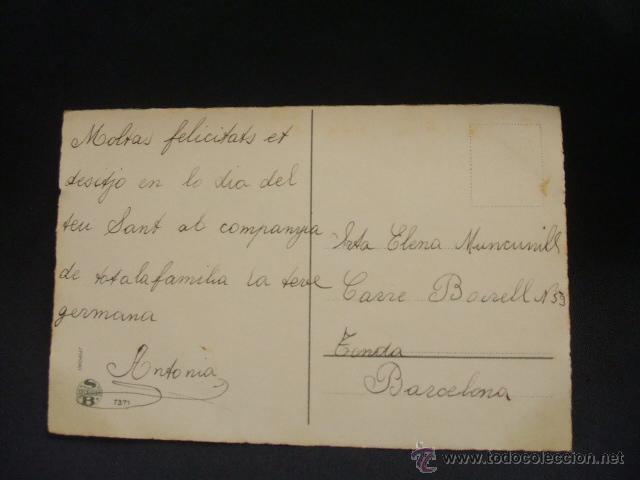 Moltas felicitats et
desitjo en lo dia del
teu Sant al companyia
de totalafamilia la teve
germana
Antonia
73/71
Srta Elena Muncunill
Carre Borrell Nº 53
Tenda
Barcelona
© todocoleccion
www.todocoleccion.net